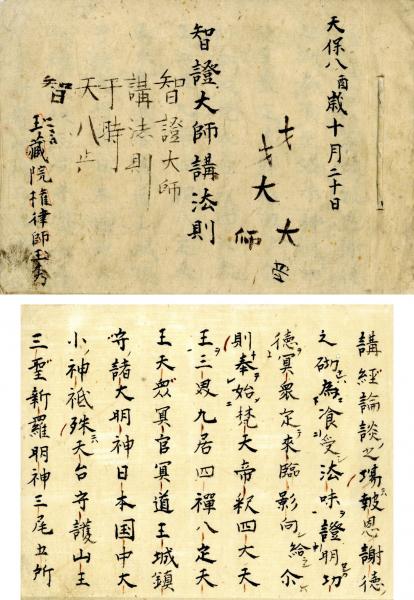 天保八酉歳十月二十日
大
大
師
智證大師講法則
智證大師
講法則
于時
天八
智
玉藏院權律師玉秀
講經論談之場報恩謝徳
之砌為飡受法味證明功
徳冥衆定来臨影向給ﾗﾝ尒
則奉始梵天帝釈四大天
王三界九居四禪八定天
王天衆冥官冥道王城鎮
守諸大明神日本国中大
小神祇殊天台守護山王
三聖新羅明神三尾五所